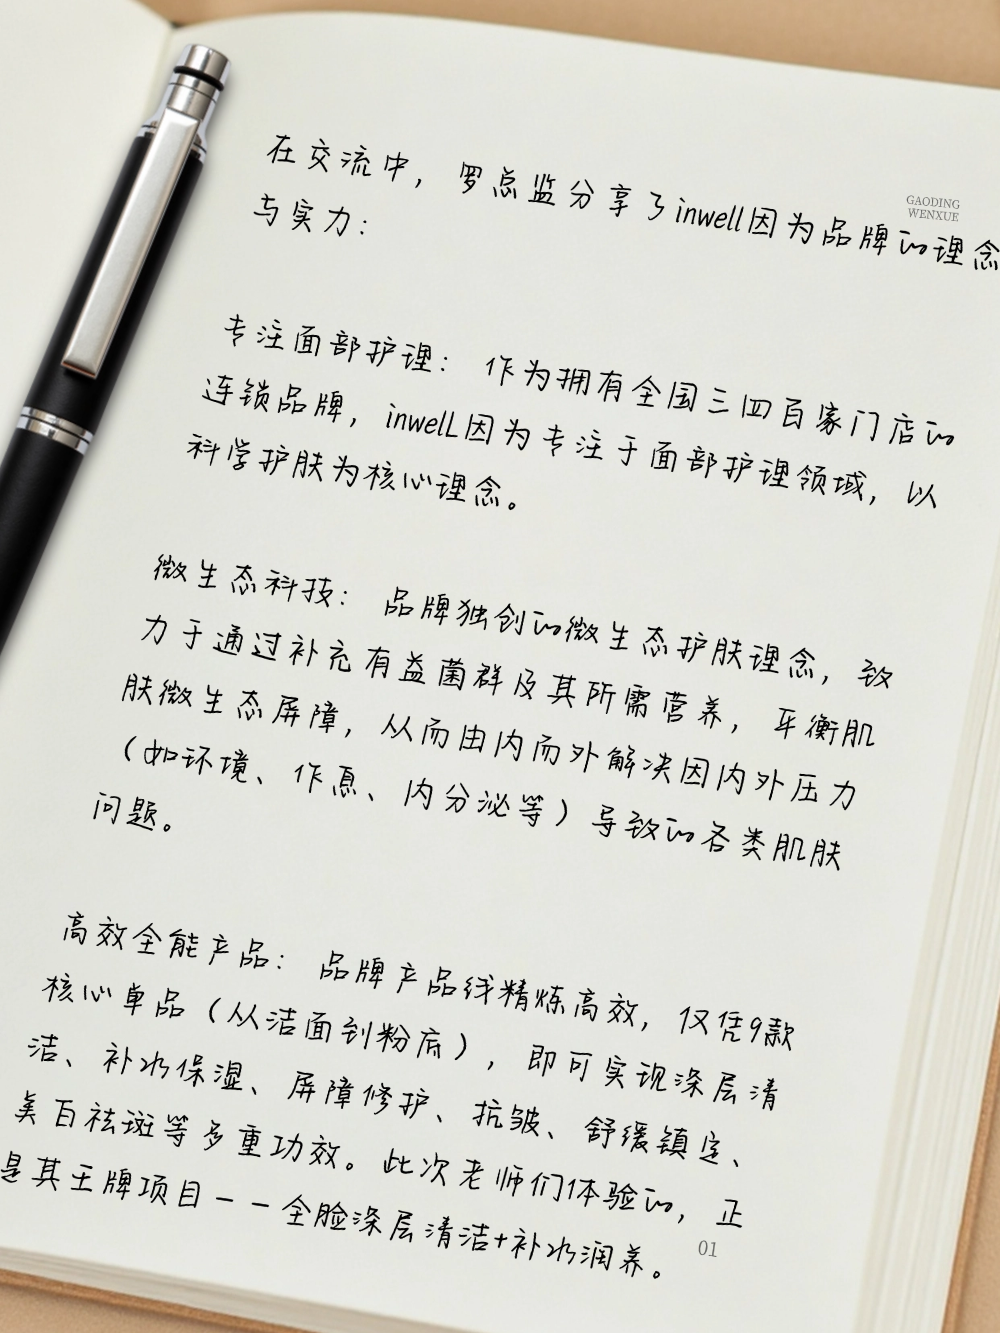 在交流中，罗总监分享了inwell因为品牌的理念
与实力：
GAODING
WENXUE
专注面部护理：作为拥有全国三四百家门店的
连锁品牌，inwelL因为专注于面部护理领域，以
科学护肤为核心理念。
微生态科技：品牌独创的微生态护肤理念，致
力于通过补充有益菌群及其所需营养，平衡肌
肤微生态屏障，从而由内而外解决因内外压力
（如环境、作息、内分泌等）导致的各类肌肤
问题。
高效全能产品：品牌产品线精炼高效，仅凭9款
核心单品（从洁面到粉底），即可实现深层清
洁、补水保湿、屏障修护、抗皱、舒缓镇定、
美白祛斑等多重功效。此次老师们体验的，正
是其王牌项目——全脸深层清洁+补水润养。
01